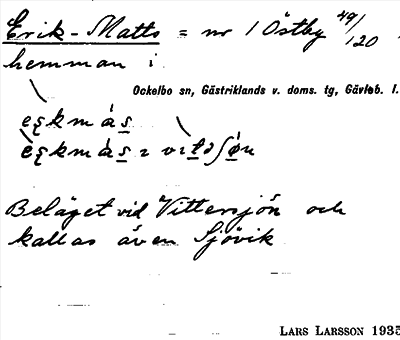 Erik-Matts = nr 1 Östby 49/120
hemman i
Ockelbo sn, Gästriklands v. doms. tg, Gävleb. l.
Beläget vid Vittersjön och
kallas även Sjövik
LARS LARSSON 1935